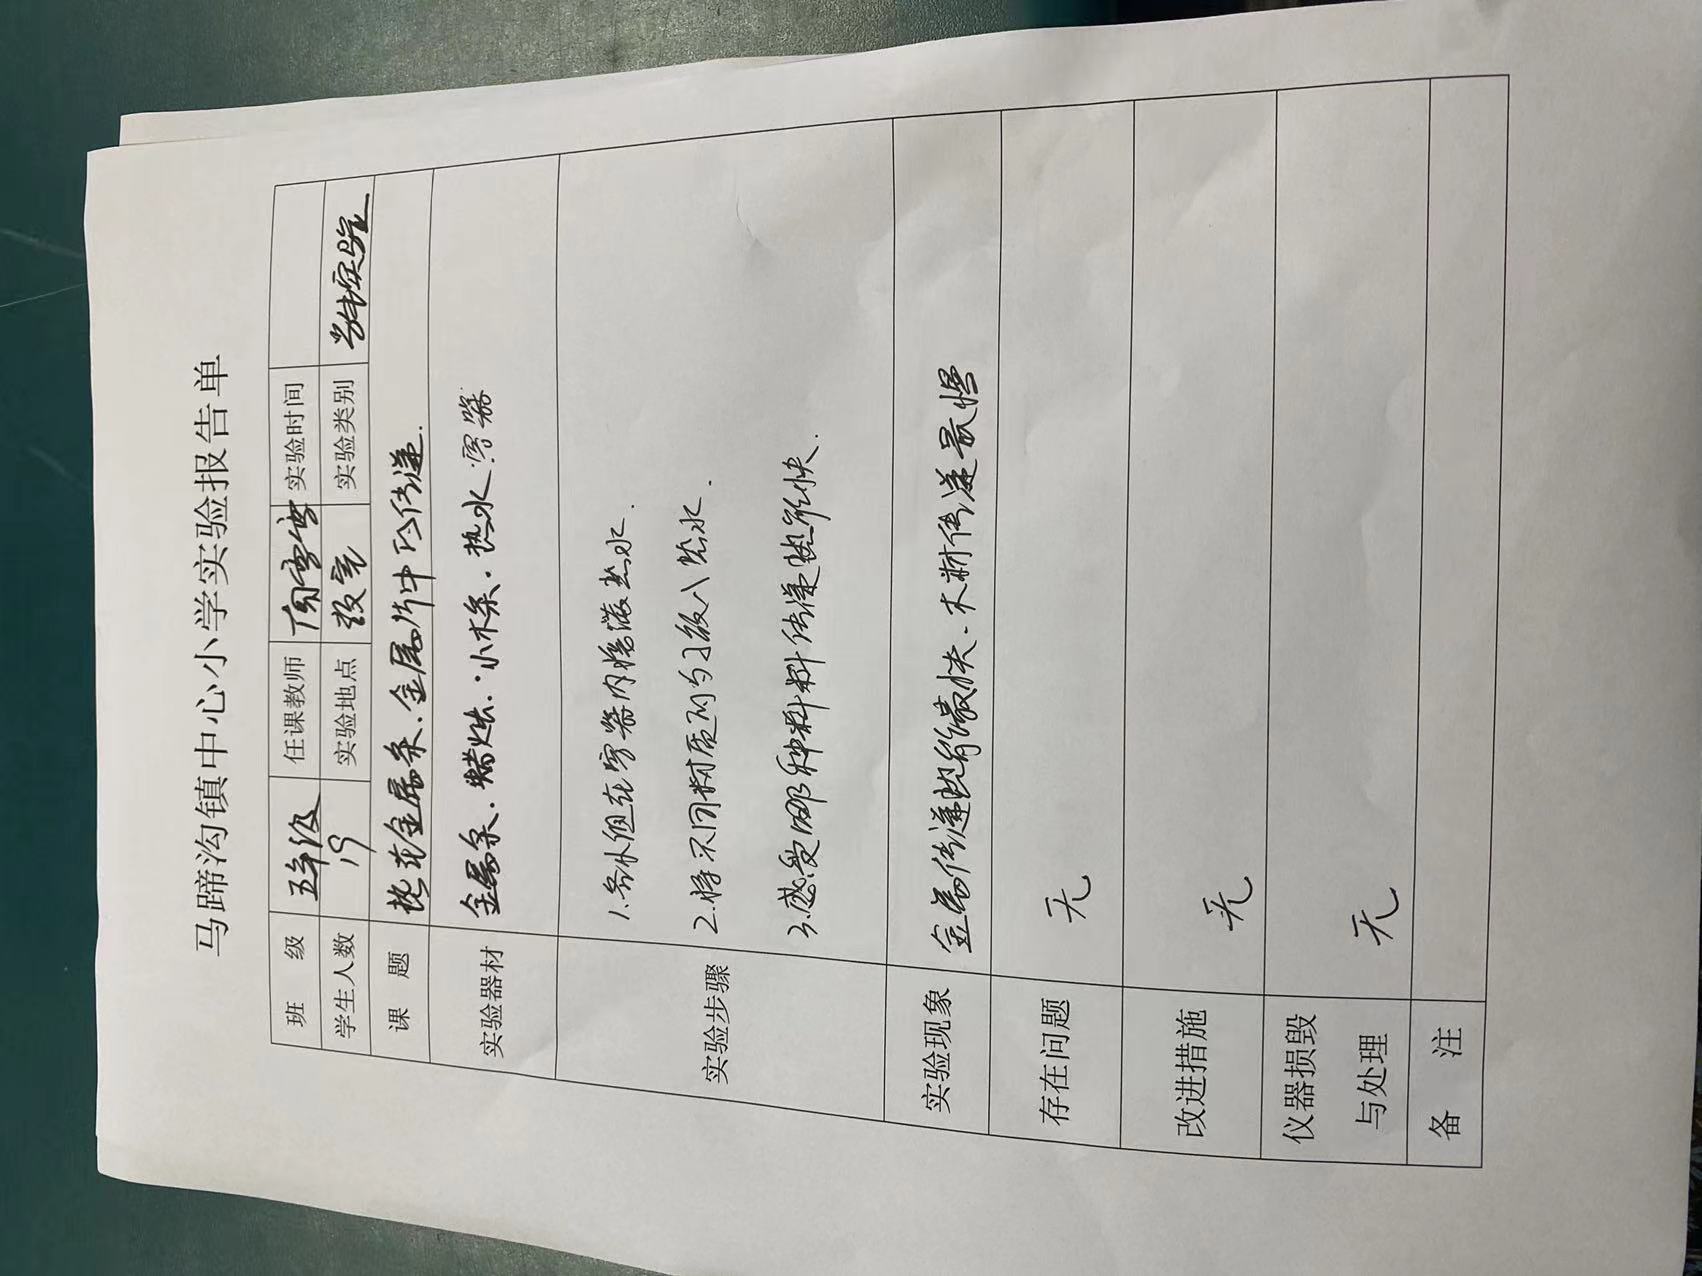 马蹄沟镇中心小学实验报告单
班 级 五年级 任课教师 实验时间
学生人数 19 实验地点 教室 实验类别 实验
课 题 热在金属条、金属片中的传递.
实验器材 金属条、蜡烛、小木条、热水、容器
实验步骤
1.各小组在容器内盛满热水.
2.将不同材质的勺子放入热水.
3.感受哪种材料传递热能快.
实验现象 金属传递热能最快、木材传递最慢
存在问题 无
改进措施 无
仪器损毁
与处理 无
备 注